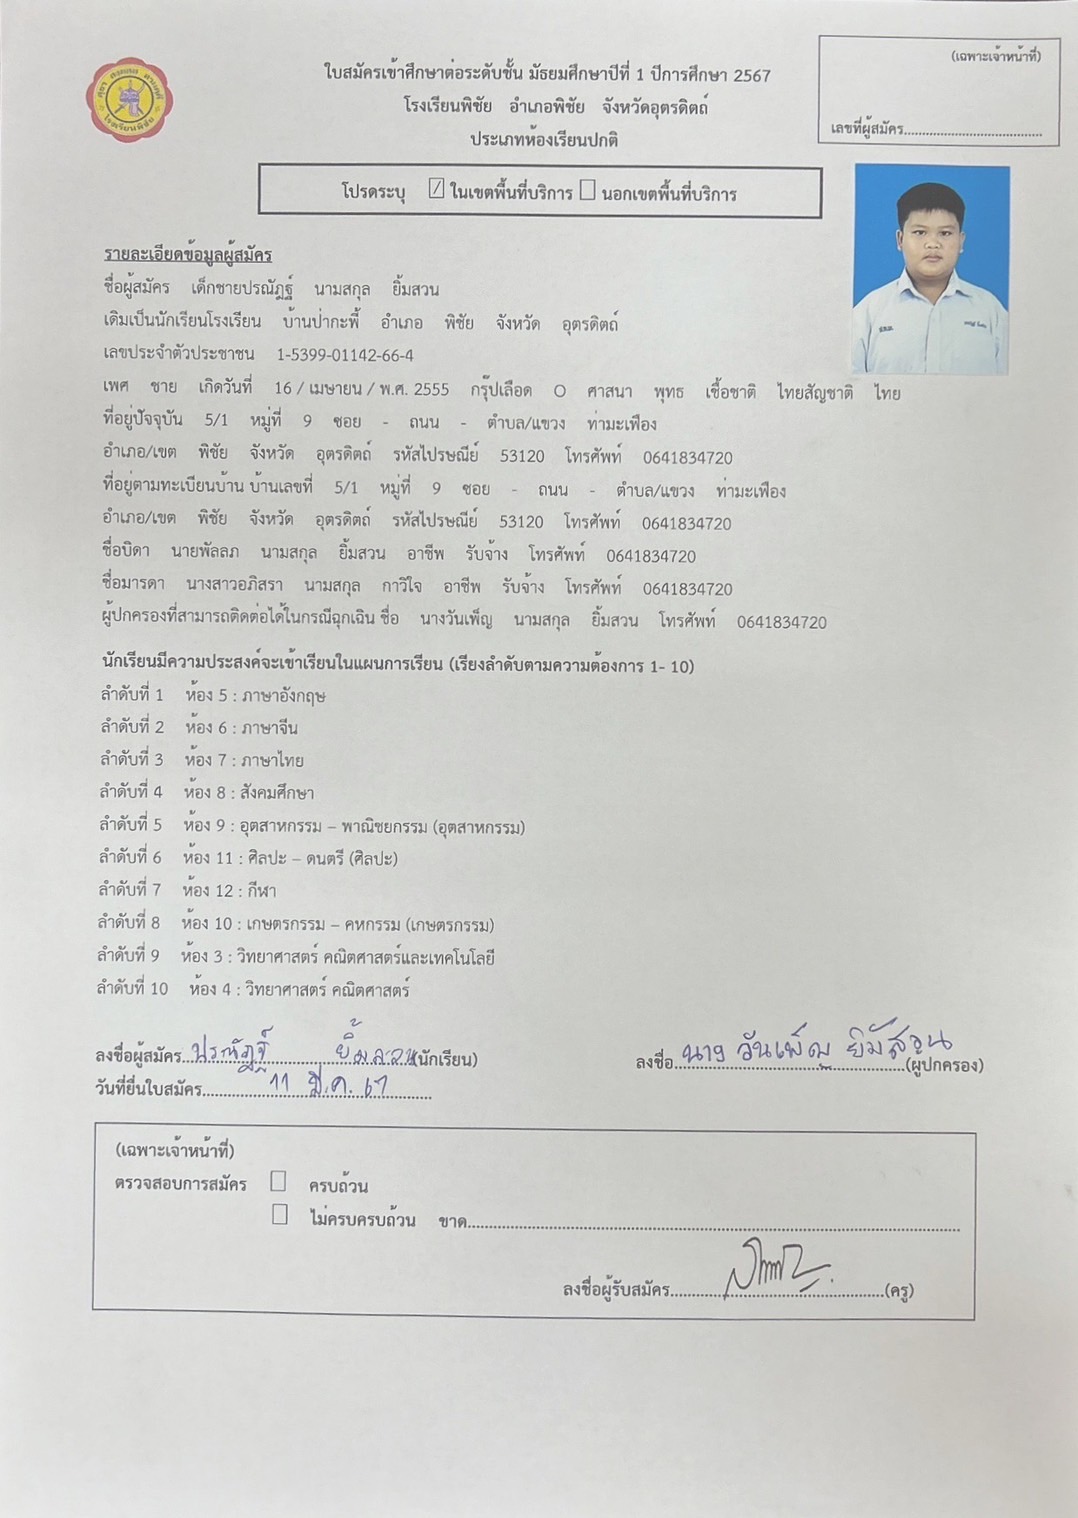 (เฉพาะเจ้าหน้าที่)
เลขที่ผู้สมัคร......................................
ใบสมัครเข้าศึกษาต่อระดับชั้น มัธยมศึกษาปีที่ 1 ปีการศึกษา 2567
โรงเรียนพิชัย อำเภอพิชัย จังหวัดอุตรดิตถ์
ประเภทห้องเรียนปกติ
โรงเรียนพิชัย
โปรดระบุ ☑ ในเขตพื้นที่บริการ ☐ นอกเขตพื้นที่บริการ
รายละเอียดข้อมูลผู้สมัคร
ชื่อผู้สมัคร เด็กชายปรณัฎฐ์ นามสกุล ยิ้มสวน
เดิมเป็นนักเรียนโรงเรียน บ้านป่ากะพี้ อำเภอ พิชัย จังหวัด อุตรดิตถ์
เลขประจำตัวประชาชน 1-5399-01142-66-4
เพศ ชาย เกิดวันที่ 16 / เมษายน / พ.ศ. 2555 กรุ๊ปเลือด O ศาสนา พุทธ เชื้อชาติ ไทยสัญชาติ ไทย
ที่อยู่ปัจจุบัน 5/1 หมู่ที่ 9 ซอย - ถนน - ตำบล/แขวง ท่ามะเฟือง
อำเภอ/เขต พิชัย จังหวัด อุตรดิตถ์ รหัสไปรษณีย์ 53120 โทรศัพท์ 0641834720
ที่อยู่ตามทะเบียนบ้าน บ้านเลขที่ 5/1 หมู่ที่ 9 ซอย - ถนน - ตำบล/แขวง ท่ามะเฟือง
อำเภอ/เขต พิชัย จังหวัด อุตรดิตถ์ รหัสไปรษณีย์ 53120 โทรศัพท์ 0641834720
ชื่อบิดา นายพัลลภ นามสกุล ยิ้มสวน อาชีพ รับจ้าง โทรศัพท์ 0641834720
ชื่อมารดา นางสาวอภิสรา นามสกุล กาวิใจ อาชีพ รับจ้าง โทรศัพท์ 0641834720
ผู้ปกครองที่สามารถติดต่อได้ในกรณีฉุกเฉิน ชื่อ นางวันเพ็ญ นามสกุล ยิ้มสวน โทรศัพท์ 0641834720
นักเรียนมีความประสงค์จะเข้าเรียนในแผนการเรียน (เรียงลำดับตามความต้องการ 1- 10)
ลำดับที่ 1 ห้อง 5 : ภาษาอังกฤษ
ลำดับที่ 2 ห้อง 6 : ภาษาจีน
ลำดับที่ 3 ห้อง 7 : ภาษาไทย
ลำดับที่ 4 ห้อง 8 : สังคมศึกษา
ลำดับที่ 5 ห้อง 9 : อุตสาหกรรม – พาณิชยกรรม (อุตสาหกรรม)
ลำดับที่ 6 ห้อง 11 : ศิลปะ – ดนตรี (ศิลปะ)
ลำดับที่ 7 ห้อง 12 : กีฬา
ลำดับที่ 8 ห้อง 10 : เกษตรกรรม – คหกรรม (เกษตรกรรม)
ลำดับที่ 9 ห้อง 3 : วิทยาศาสตร์ คณิตศาสตร์และเทคโนโลยี
ลำดับที่ 10 ห้อง 4 : วิทยาศาสตร์ คณิตศาสตร์
ลงชื่อผู้สมัคร ปรณัฎฐ์ ยิ้มสวน (นักเรียน) ลงชื่อ นาง วันเพ็ญ ยิ้มสวน (ผู้ปกครอง)
วันที่ยื่นใบสมัคร 11 มี.ค. 67
(เฉพาะเจ้าหน้าที่)
ตรวจสอบการสมัคร ☐ ครบถ้วน
☐ ไม่ครบครบถ้วน ขาด......................................
ลงชื่อผู้รับสมัคร......................................(ครู)